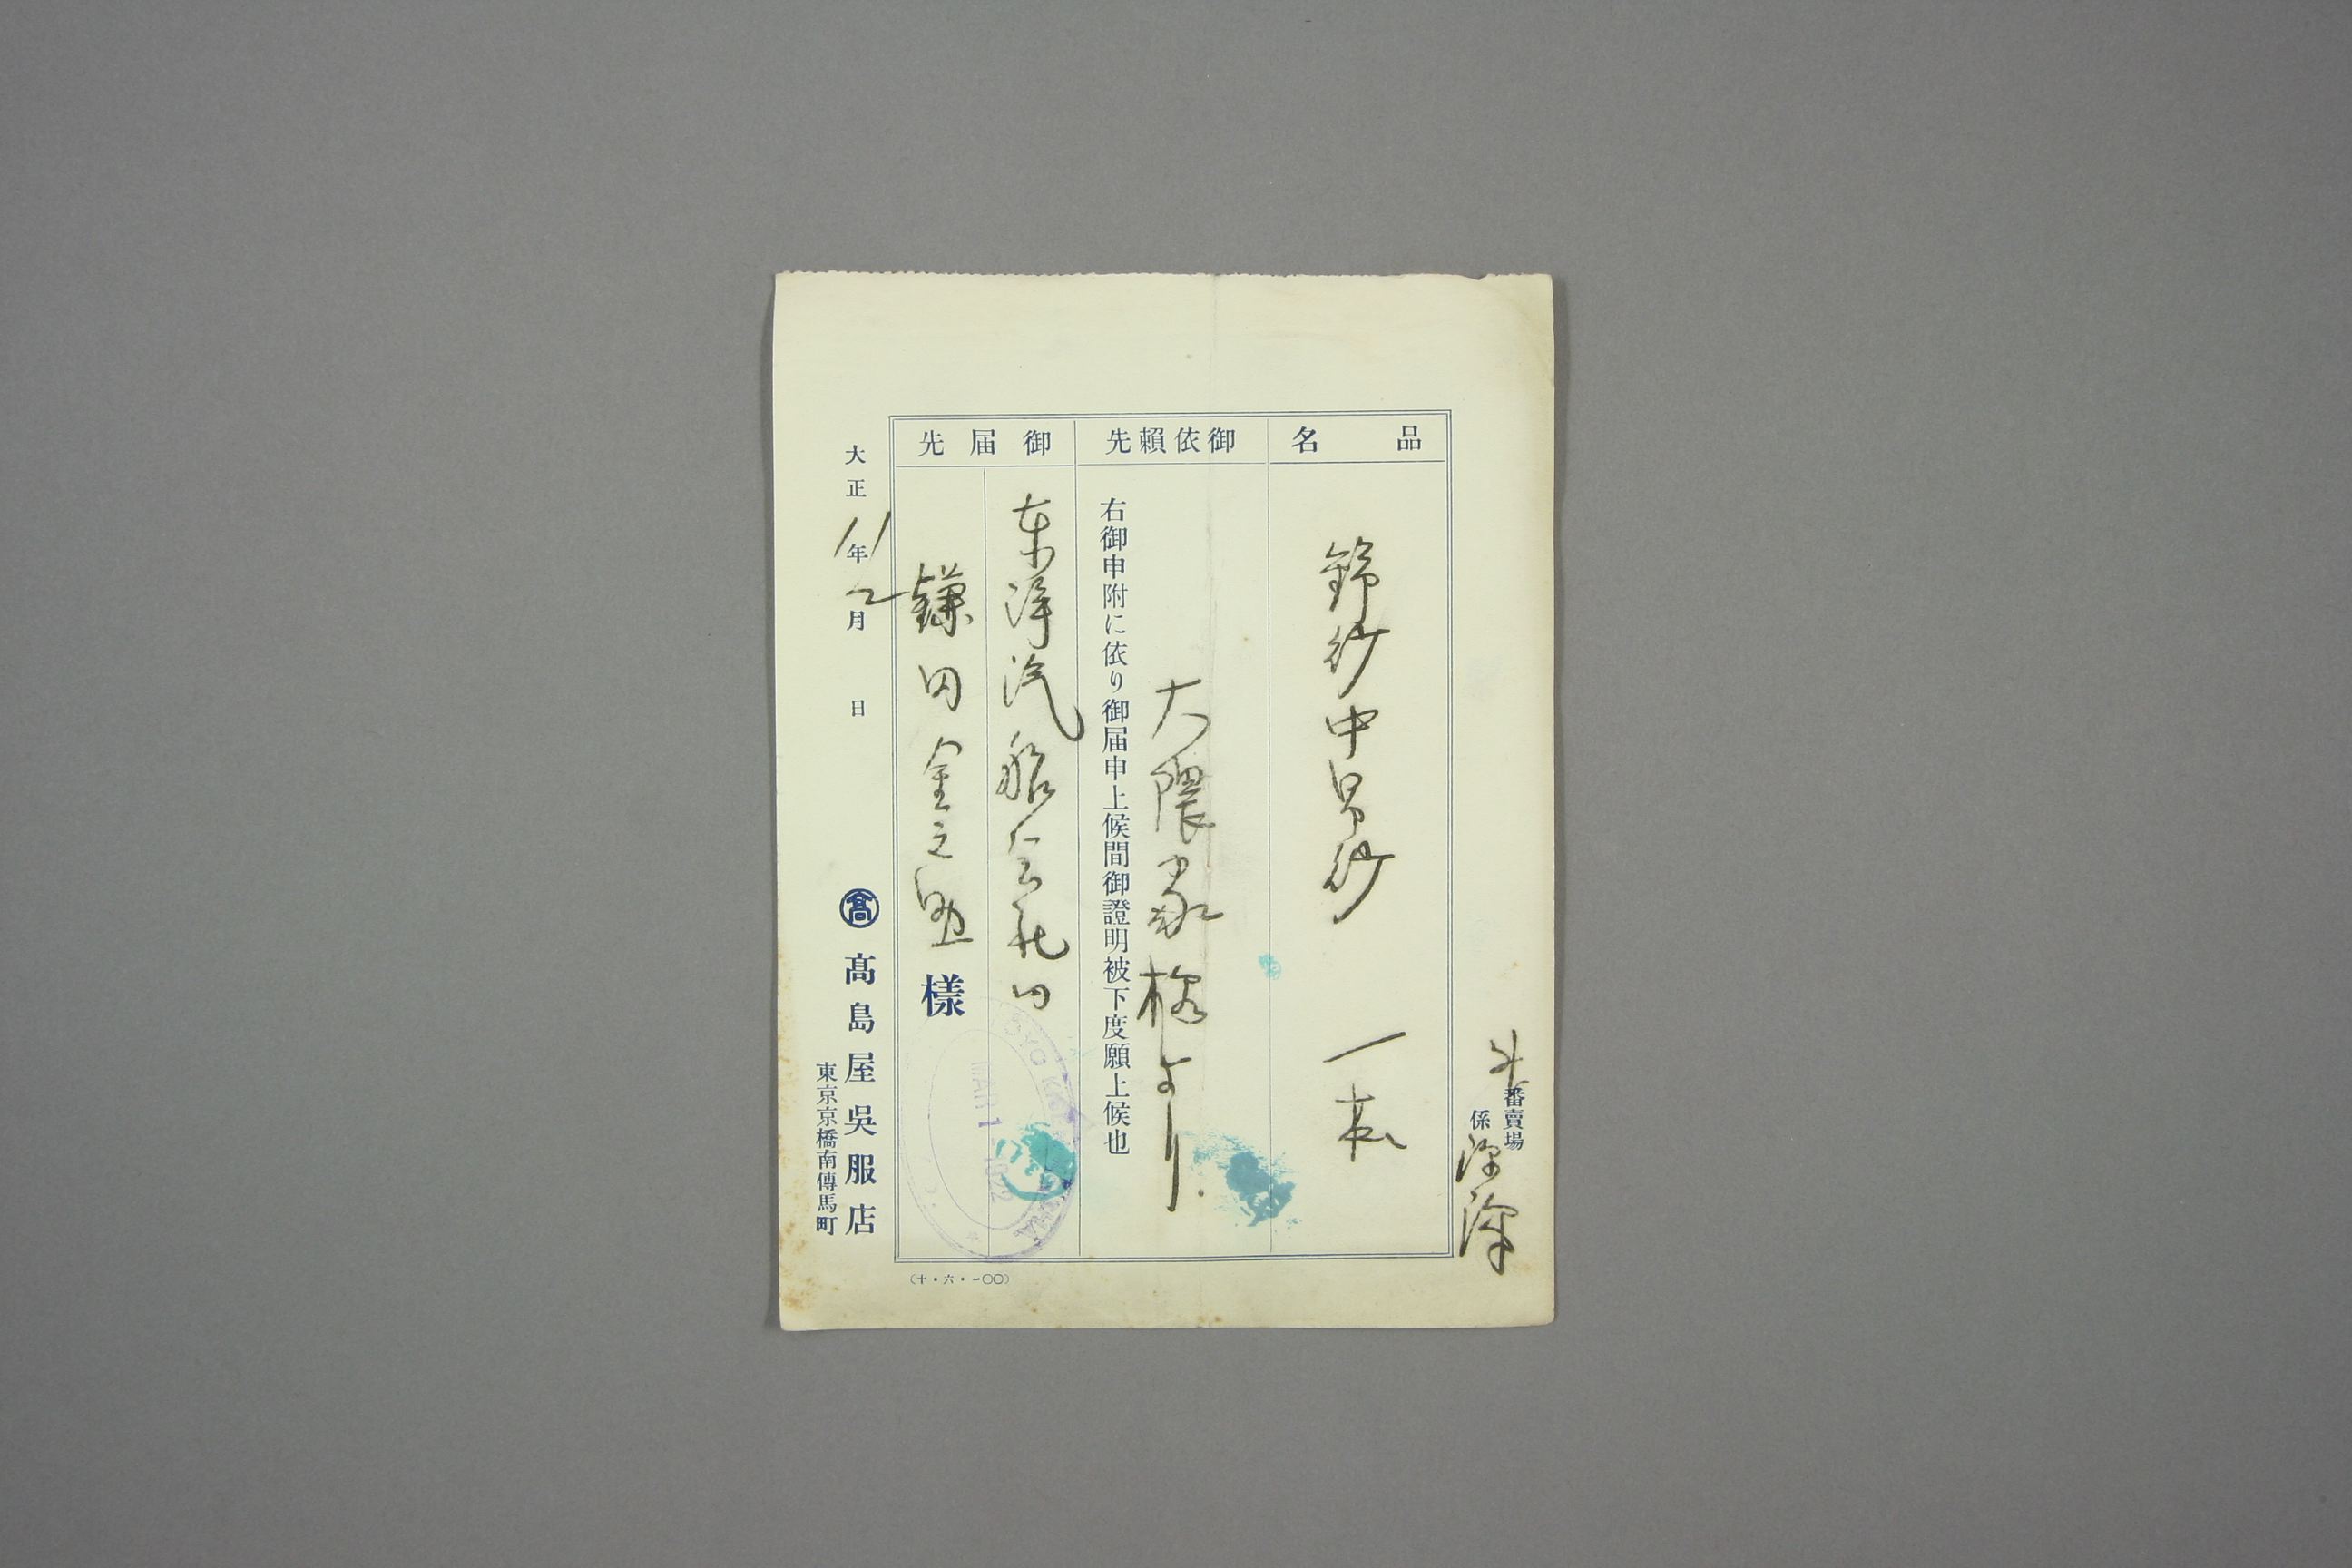 番賣場
係
品名
錦紗中帛紗 一本
御依頼先
大隈家様より
右御申附に依り御届申上候間御證明被下度願上候也
御届先
東洋汽船会社内
鎌田金之助様
大正11年2月 日
髙
髙島屋呉服店
東京京橋南傳馬町
(十・六・一〇〇)
TOYO KISEN KAISHA
MAR 1 1922